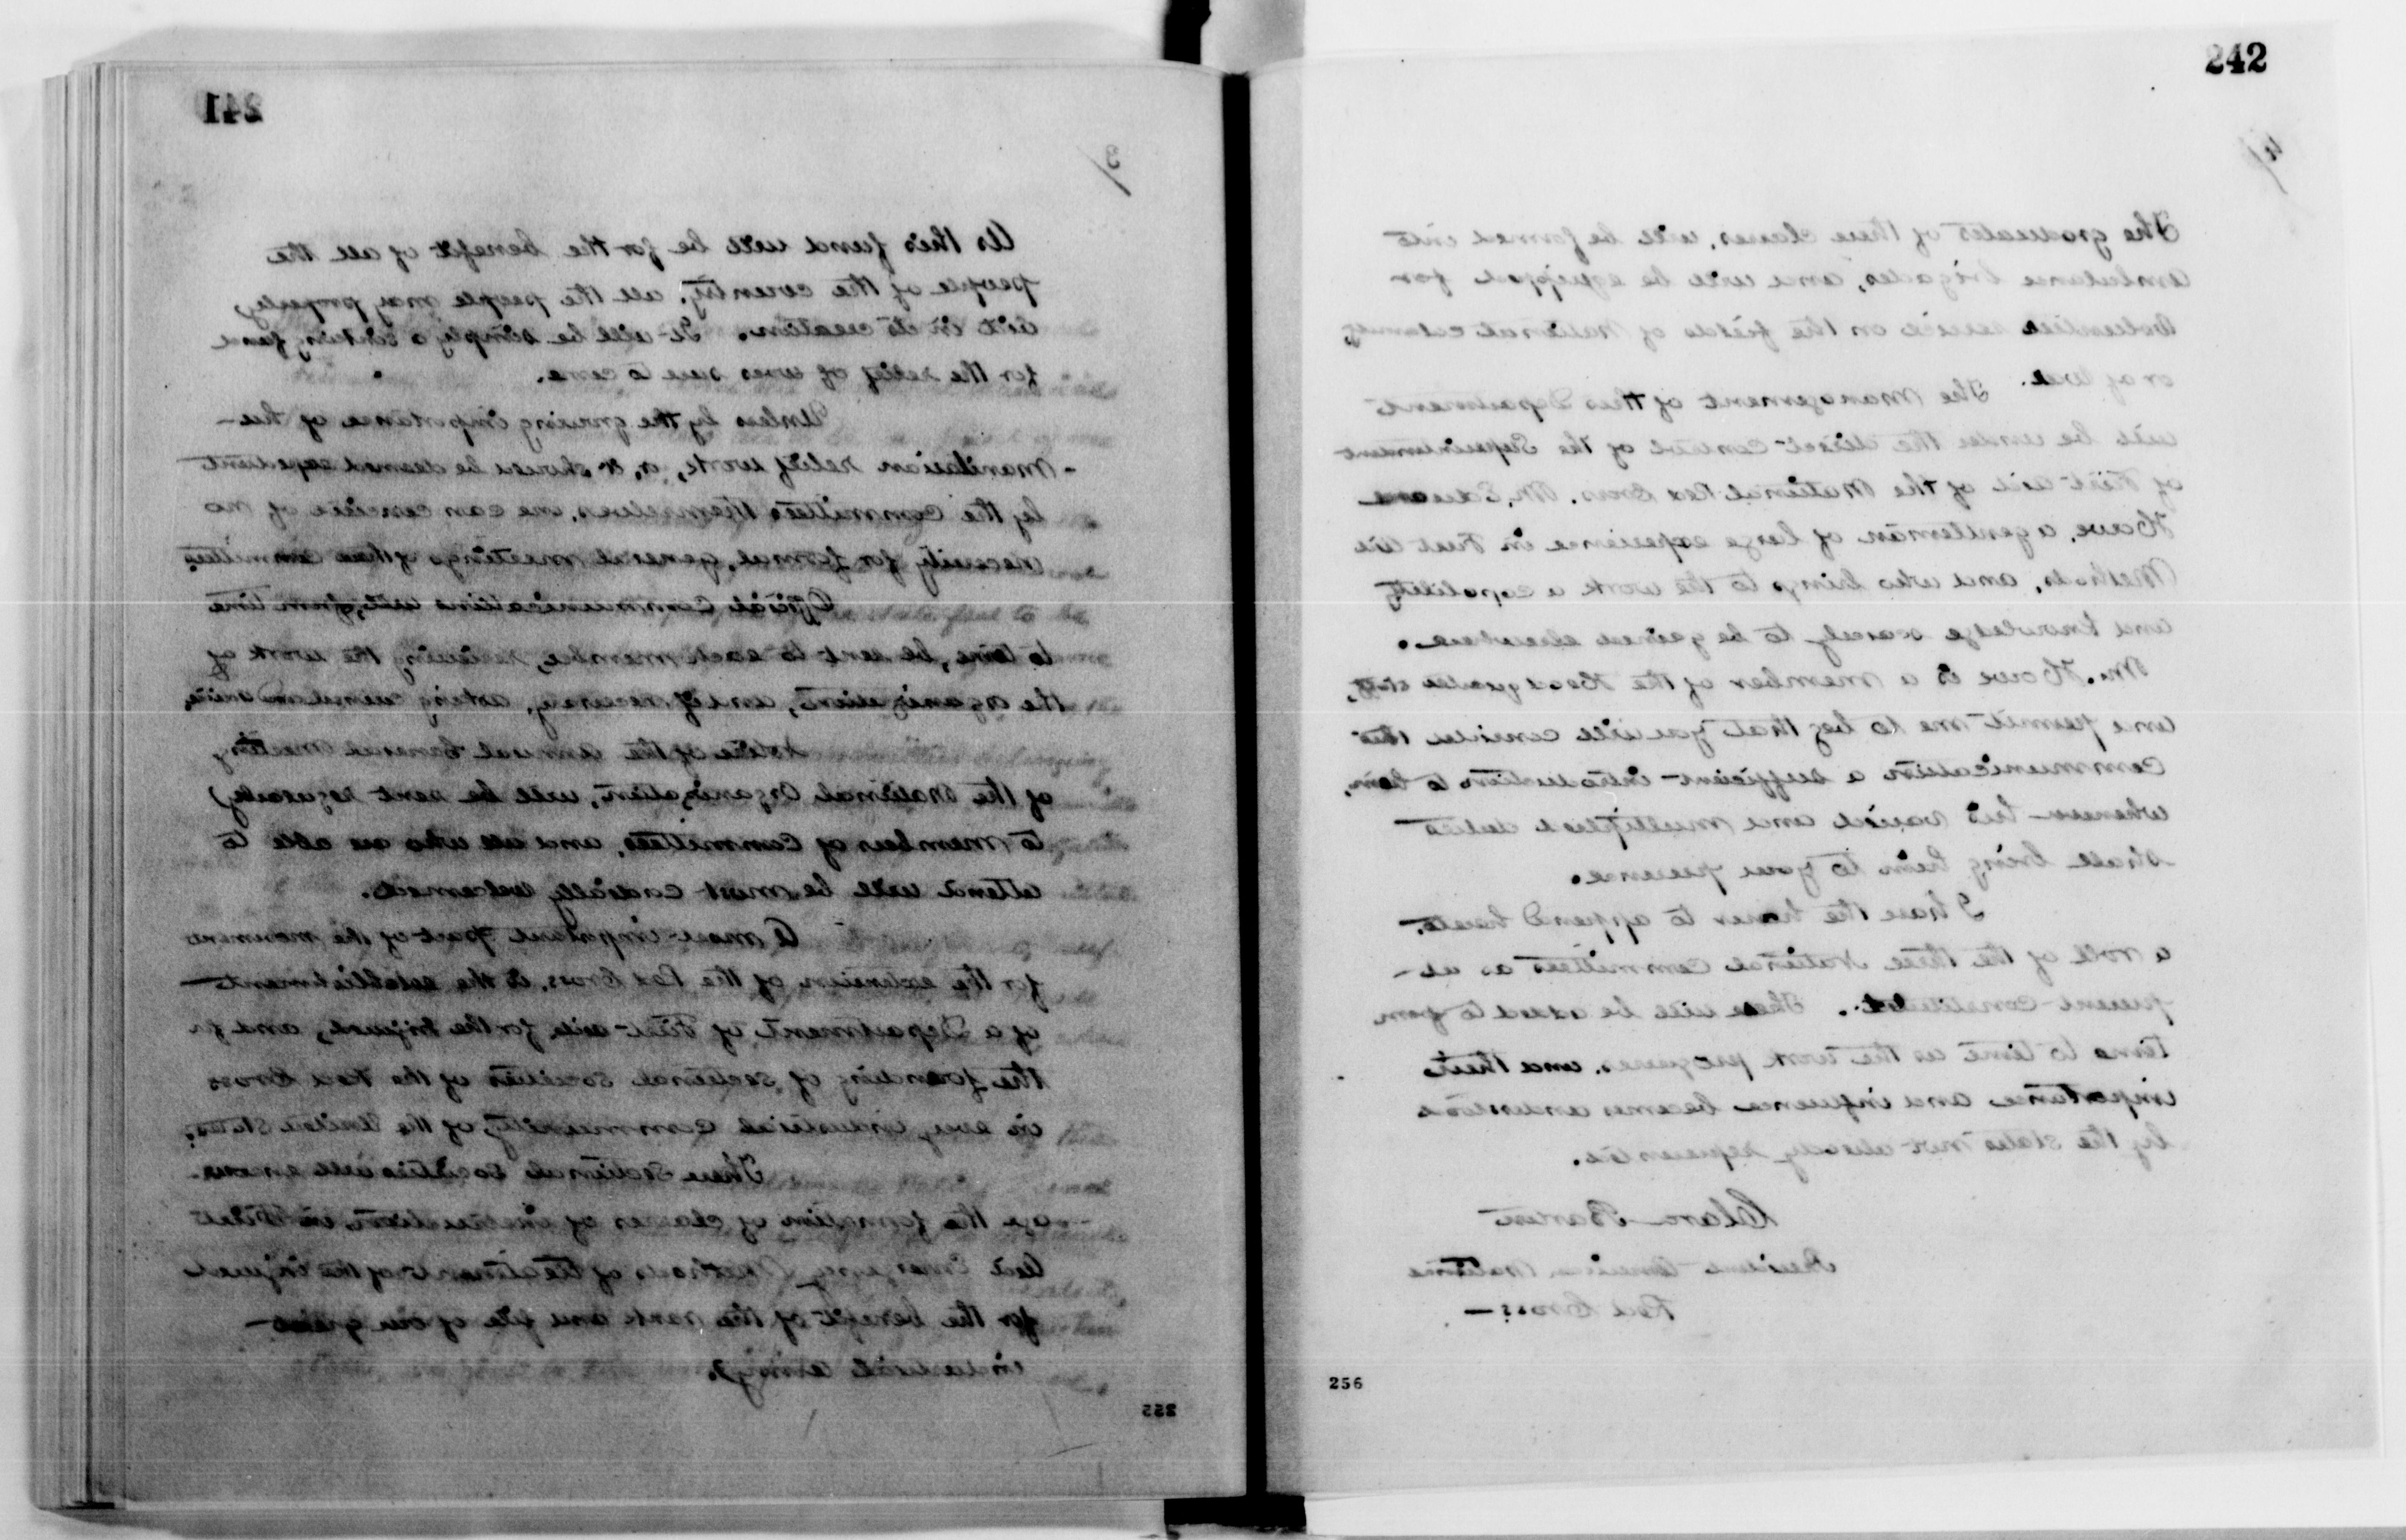 241
3/
As this fund will be for the benefit of all the
people of the country, all the people may properly
aid in its creation. It will be simply a sinking fund
for the relief of woes sure to come.
Unless by the growing importance of the hu-
-manitarian relief work, or, it should be deemed expedient
by the committees themselves, we can conceive of no
necessity for formal, general meetings of these committees.
Official communications will, from time
to time, be sent to each member, reciting the work of
the organization, and if necessary, asking counsel and advice.
Notice of the annual General meeting
of the National Organization, will be sent regularly
to members of committees, and all who are able to
attend will be most cordially welcomed.
A most important part of the movement
for the extension of the Red Cross, is the establishment
of a Department of First aid for the Injured, and for
the founding of sectional societies of the Red Cross
in every industrial community of the United States.
These sectional societies will encour-
-age the formation of classes of instruction in
Emergency Methods of treatment of the injured
for the benefit of the rank and file of our great
industrial army.
255
242
4/
The graduates of these classes, will be formed into
ambulance brigades, and will be equipped for
volunteer service on the fields of National calamity,
or of war. The management of this Department
will be under the direct control of the Superintendent
of First aid of the National Red Cross, Mr. Edward
Howe, a gentleman of large experience in First aid
Methods, and who brings to the work a capability
and knowledge scarcely to be gained elsewhere.
Mr. Howe is a member of the Headquarters staff,
and permit me to beg that you will consider this
communication a sufficient introduction to him,
whenever his varied and multiplied duties
shall bring him to your presence.
I have the honor to append hereto,
a roll of the three National committees as at
present constituted. These will be added to from
time to time as the work progresses, and their
importance and influence becomes understood
by the states not already represented.
Clara Barton
President American National
Red Cross —
256